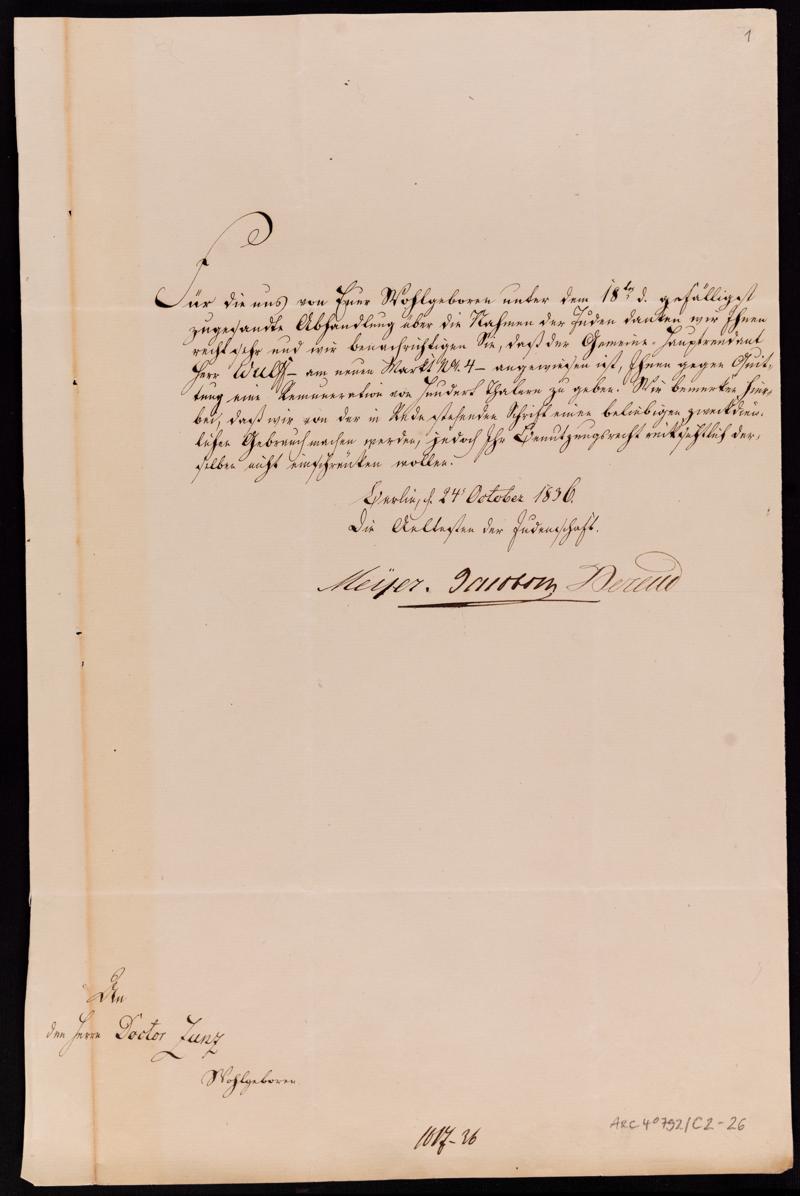 1
Für die uns von Euer Wohlgeboren unter dem 18ten d. gefälligst
zugesandte Abhandlung über die Nahmen der Juden danken wir Ihnen
recht sehr und wir benachrichtigen Sie, daß der Gemeine-Hauptrendant
Herr Wulff – am neuen Markt No. 4 – angewiesen ist, Ihnen gegen Quit-
tung eine Remuneration von Hundert Thalern zu geben. Wir bemerken hier-
bei, daß wir von der in Rede stehenden Schrift einen beliebigen zweckdien-
lichen Gebrauch machen werden, jedoch Ihr Benutzungsrecht rücksichtlich der-
selben nicht einschränken wollen.
Berlin, d. 24t October 1836.
Die Aeltesten der Judenschaft.
Meyer. Jacobson Berend
An
den Herrn Doctor Zunz
Wohlgeboren
ARC 4° 792/C2-26
1017-26